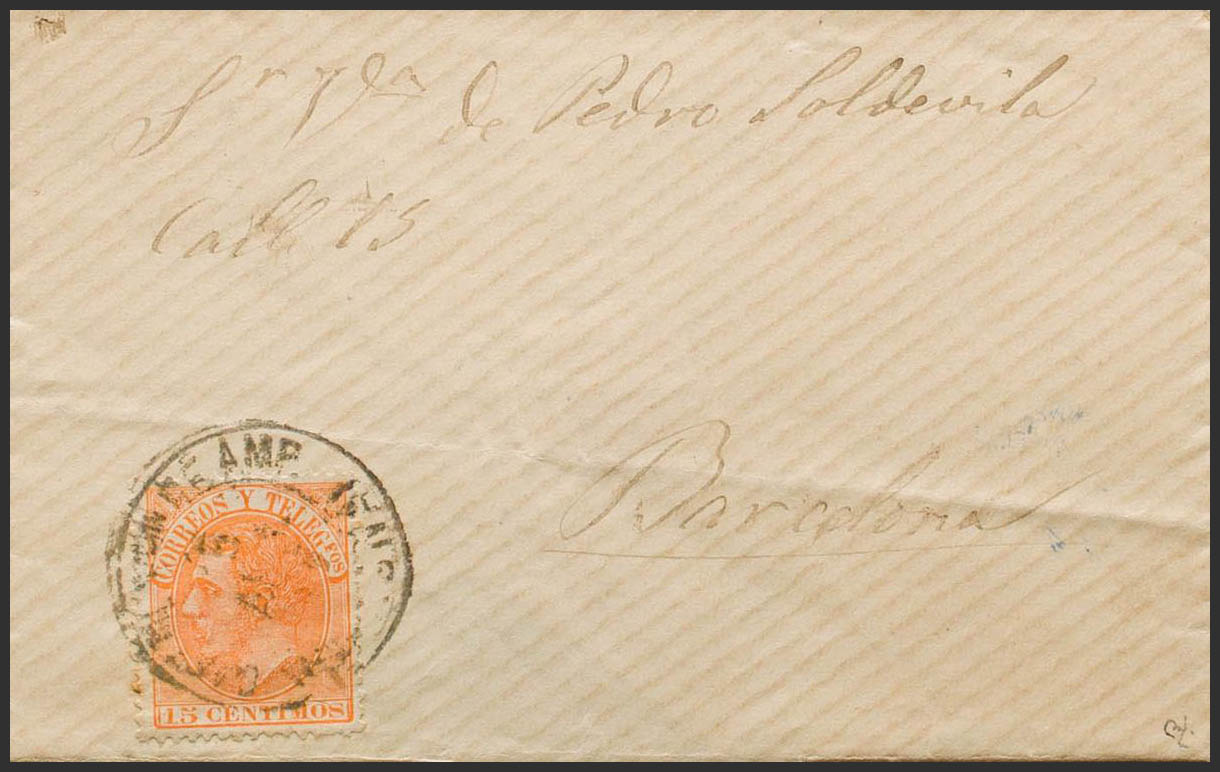 Sr Vda de Pedro Soldevila
Call 15
Barcelona
CORREOS Y TELEGFOS
15 CENTIMOS